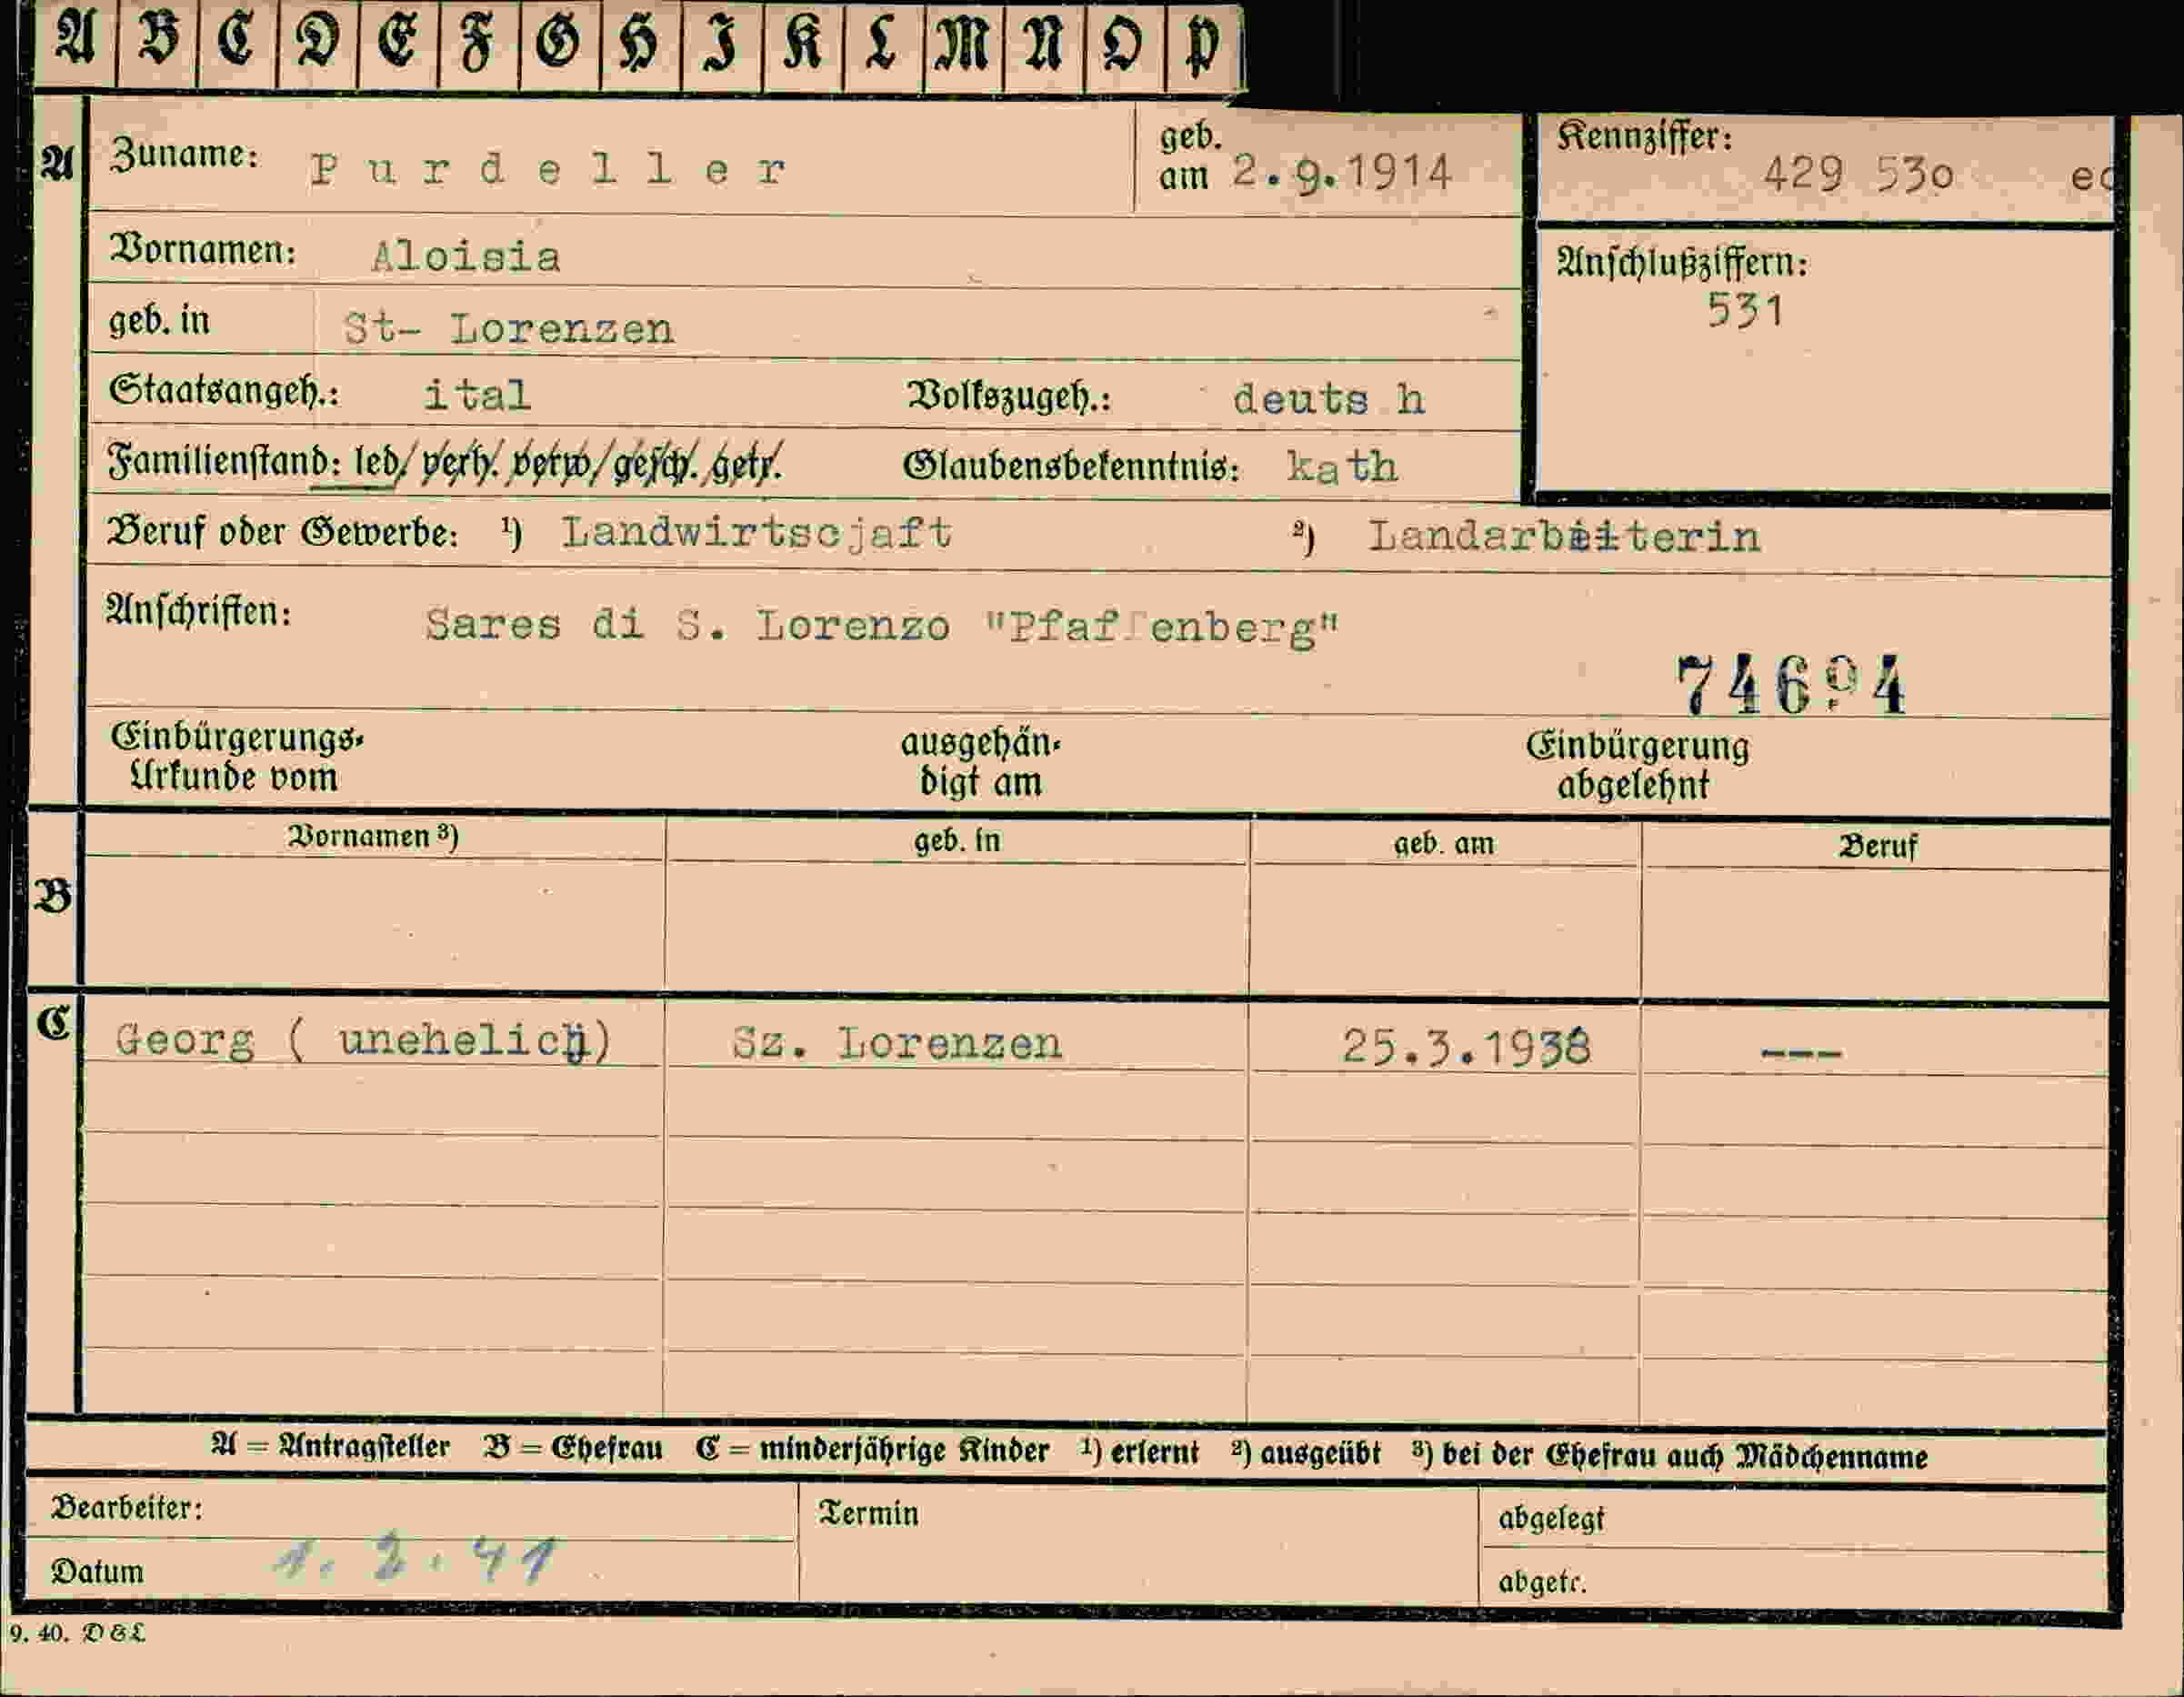 A B C D E F G H I K L M N O P
A Zuname: Purdeller geb. am 2.9.1914 Kennziffer: 429 53o
Vornamen: Aloisia Anschlußziffern: 531
geb. in St- Lorenzen
Staatsangeh.: ital Volkszugeh.: deuts h
Familienstand: led/ verh. verw/gesch. getr. Glaubensbekenntnis: kath
Beruf oder Gewerbe: ¹) Landwirtscjaft ²) Landarbeiterin
Anschriften: Sares di S. Lorenzo "Pfaffenberg"
74694
Einbürgerungs- ausgehän- Einbürgerung
Urkunde vom digt am abgelehnt
Vornamen ³) geb. in geb. am Beruf
B
C Georg ( unehelich) Sz. Lorenzen 25.3.1938 ---
A = Antragsteller B = Ehefrau C = minderjährige Kinder ¹) erlernt ²) ausgeübt ³) bei der Ehefrau auch Mädchenname
Bearbeiter: Termin abgelegt
Datum 1. 2. 41 abgetr.
9. 40. D & L